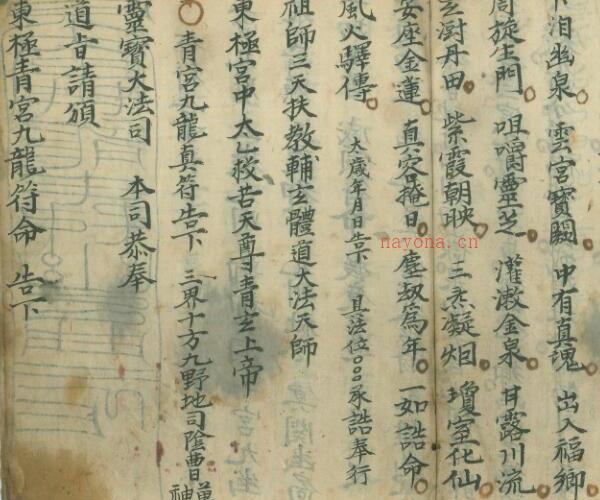 下淚幽泉。雲宮寶闕。中有真魂。出入福鄉
周旋生門。咀嚼靈芝。灌漱金泉。甘露川流
丹田。紫霞朝映。三炁凝烟。瓊室化仙
安座金蓮。真容掩日。塵劫為年。一如誥命。
風火驛傳。大歲年月日告下 具法位○○承誥奉行
祖師三天扶教輔玄體道大法天師
東極宮中太乙救苦天尊青玄上帝
青宮九龍真符告下 三界十方九野地司陰曹萬神
靈寶大法司 本司恭奉
道旨請頒
東極青宮九龍符命 告下
nayona.cn